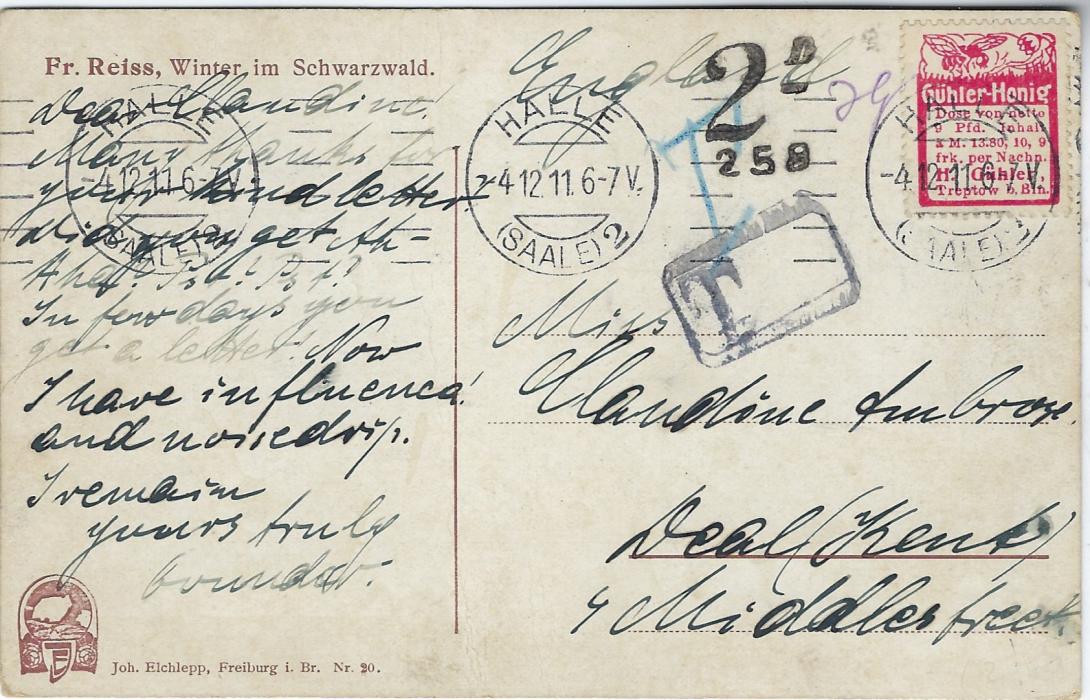 Fr. Reiss, Winter im Schwarzwald.
England
2D
258
T
HALLE
-4.12.11.6-7V.
(SAALE) 2
HALLE
-4.12.11.6-7V.
(SAALE) 2
HALLE
-4.12.11.6-7V.
(SAALE) 2
Gühler-Honig
Dose von netto
9 Pfd. Inhalt
M. 13.80, 10, 9
frk. per Nachn.
H. Gühler,
Treptow b. Bln.
T
Dear Claudine.
Many thanks for
your kind letter
did you get
In few days you
get a letter. Now
I have influenca!
and nosedrip.
I remain
yours truly
Miss
Claudine Ambrose.
Deal (Kent)
4 Middlestreet.
Joh. Elchlepp, Freiburg i. Br. Nr. 20.